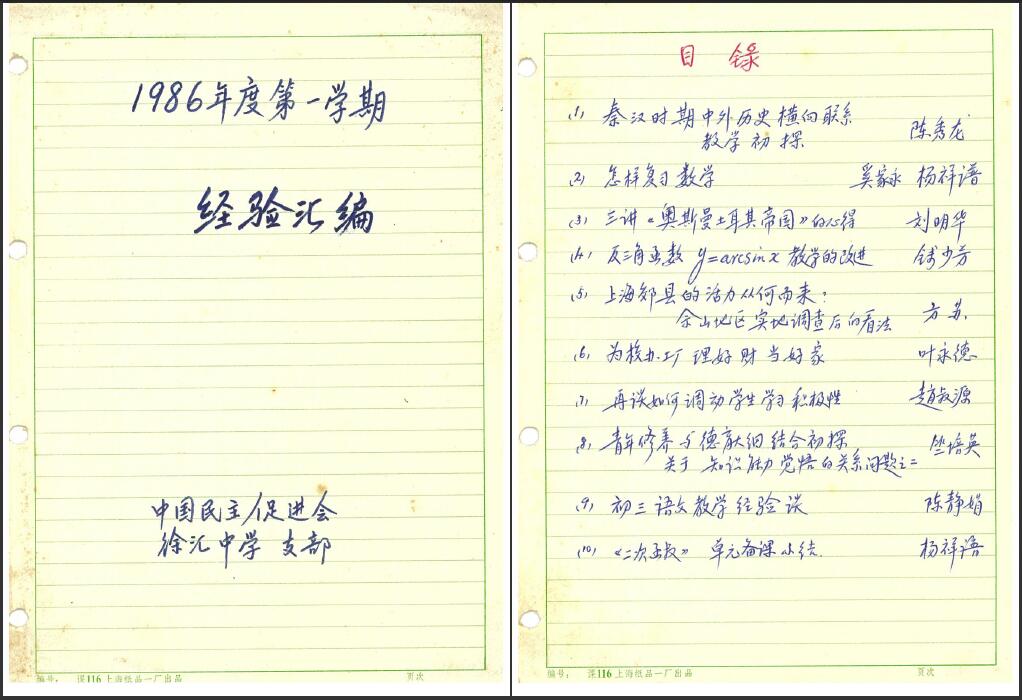 1986年度第一学期
经验汇编
中国民主促进会
徐汇中学 支部
编号: 课116 上海纸品一厂出品 页次
目 録
(1) 秦汉时期中外历史横向联系
教学初探 陈秀龙
(2) 怎样复习数学 奚家永 杨祥谱
(3) 三讲《奥斯曼土耳其帝国》的心得 刘明华
(4) 反三角函数 y=arcsinx 教学的改进 钱少芳
(5) 上海郊县的活力从何而来:
佘山地区实地调查后的看法 方苏.
(6) 为校办工厂 理好财 当好家 叶永德
(7) 再谈如何调动学生学习积极性 赵叔源
(8) 青年修养与德育大纲结合初探
关于 知识能力觉悟的关系问题之二 培英
(9) 初三语文教学经验谈 陈静娟
(10) 《二次函数》 单元备课小结. 杨祥谱
编号: 课116 上海纸品一厂出品 页次